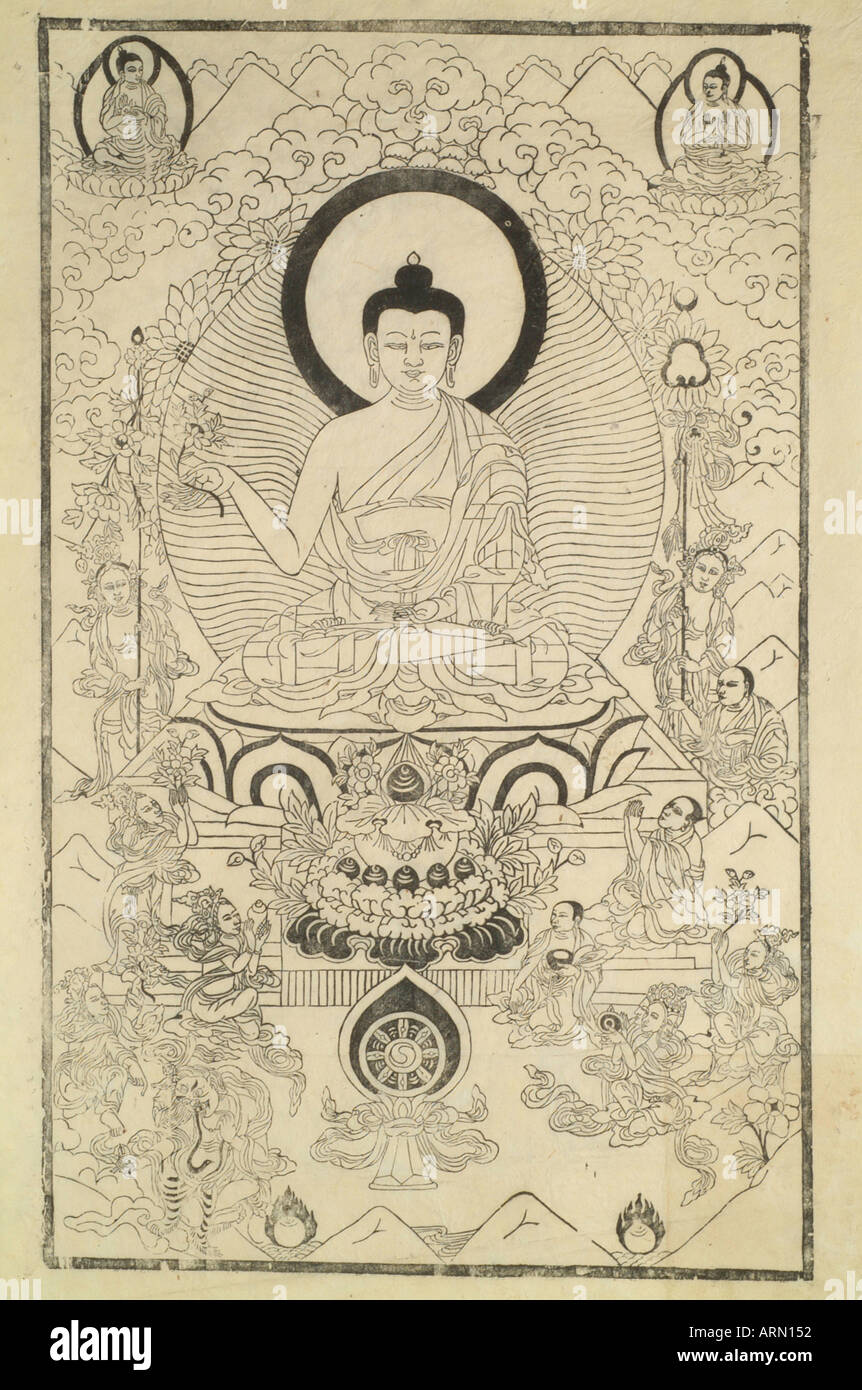 alamy
a
a
a
alamy
Image ID: ARN152
www.alamy.com